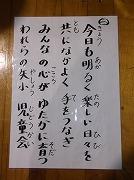 きょう あか たの ひび
今日も明るく楽しい日々を
とも て
共になかよく手をつなぎ
こころ そだ
みんなの心がゆたかに育つ
やしょう じどうかい
われらの矢小児童会